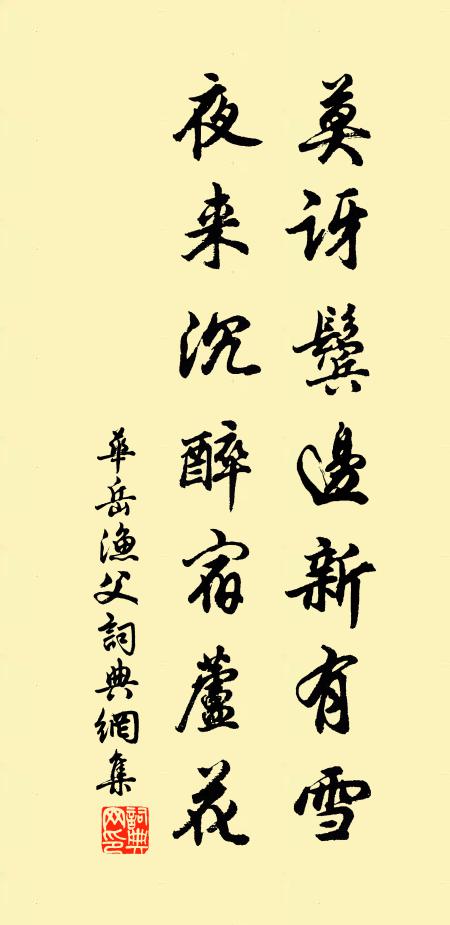 莫訝鬢邊新有雪
夜来沉醉宿蘆花
華岳漁父詞典網集
詞典网印